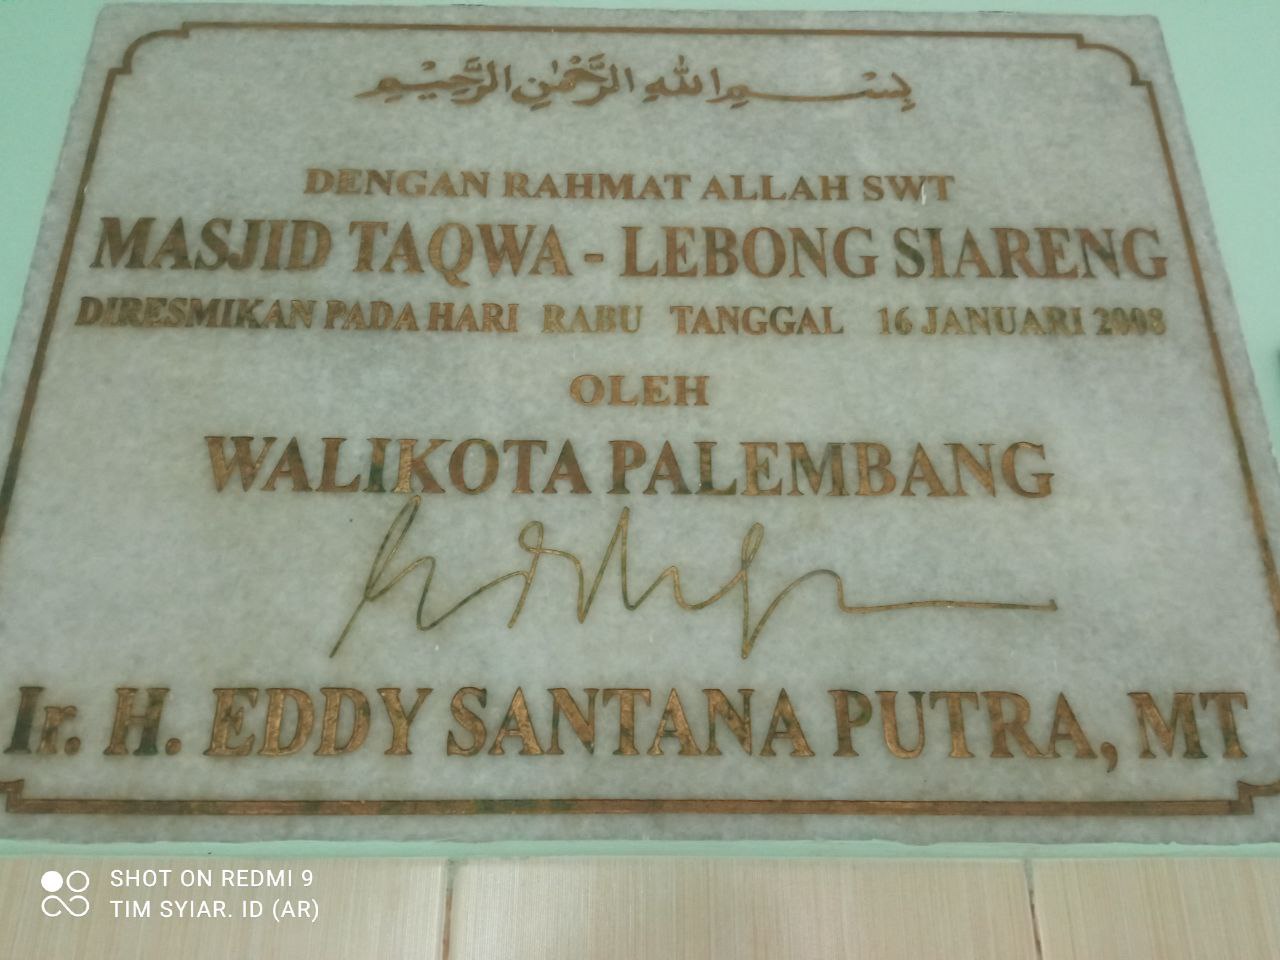 بِسْمِ اللهِ الرَّحْمٰنِ الرَّحِيْمِ
DENGAN RAHMAT ALLAH SWT
MASJID TAQWA - LEBONG SIARENG
DIRESMIKAN PADA HARI RABU TANGGAL 16 JANUARI 2008
OLEH
WALIKOTA PALEMBANG
Ir. H. EDDY SANTANA PUTRA, MT
SHOT ON REDMI 9
TIM SYIAR. ID (AR)